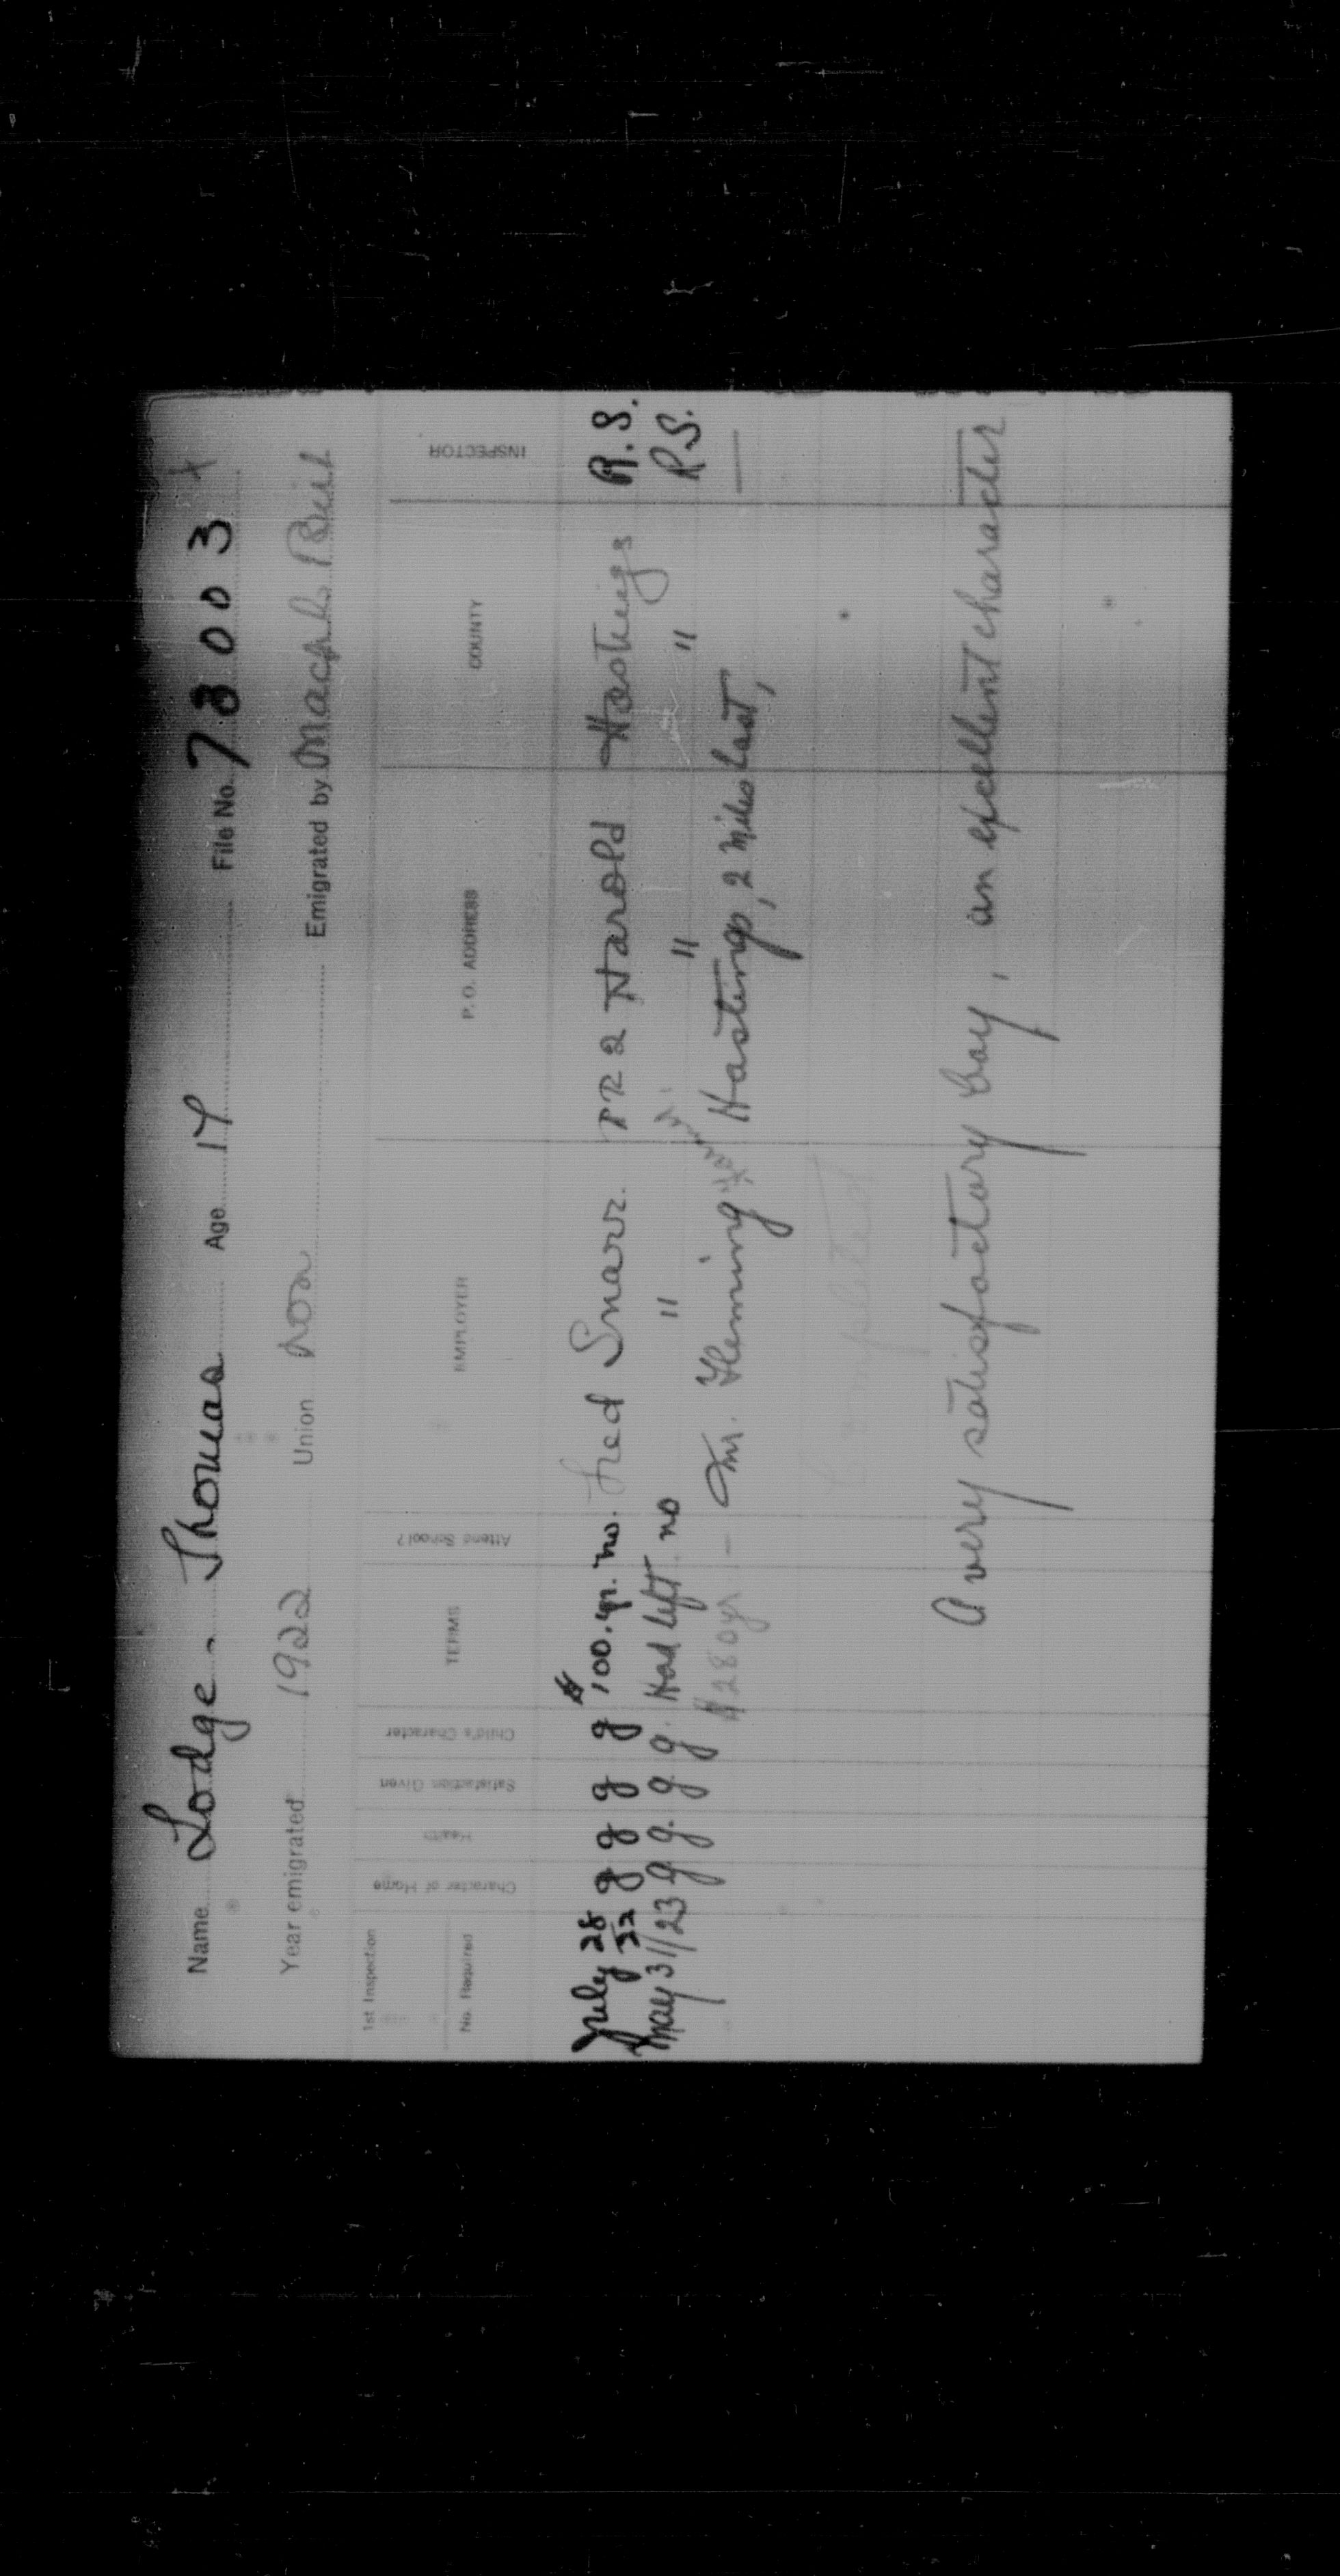 Name Lodge, Thomas Age 17 File No. 73003 X
Year emigrated 1922 Union non Emigrated by
1st Inspection
No. Required
Character of Home
Health
Satisfaction Given
Child's Character
TERMS
Attend School?
EMPLOYER
P. O. ADDRESS
COUNTY
INSPECTOR
July 28/22 g g g g $100. yr. no. Fred Snarr. RR 2 Harold Hastings R. S.
May 31/23 g g. g. g. Had left no " " " R.S.
$280 yr — Mr. Fleming Hastings, 2 miles East, —
Completed
A very satisfactory boy, an excellent character